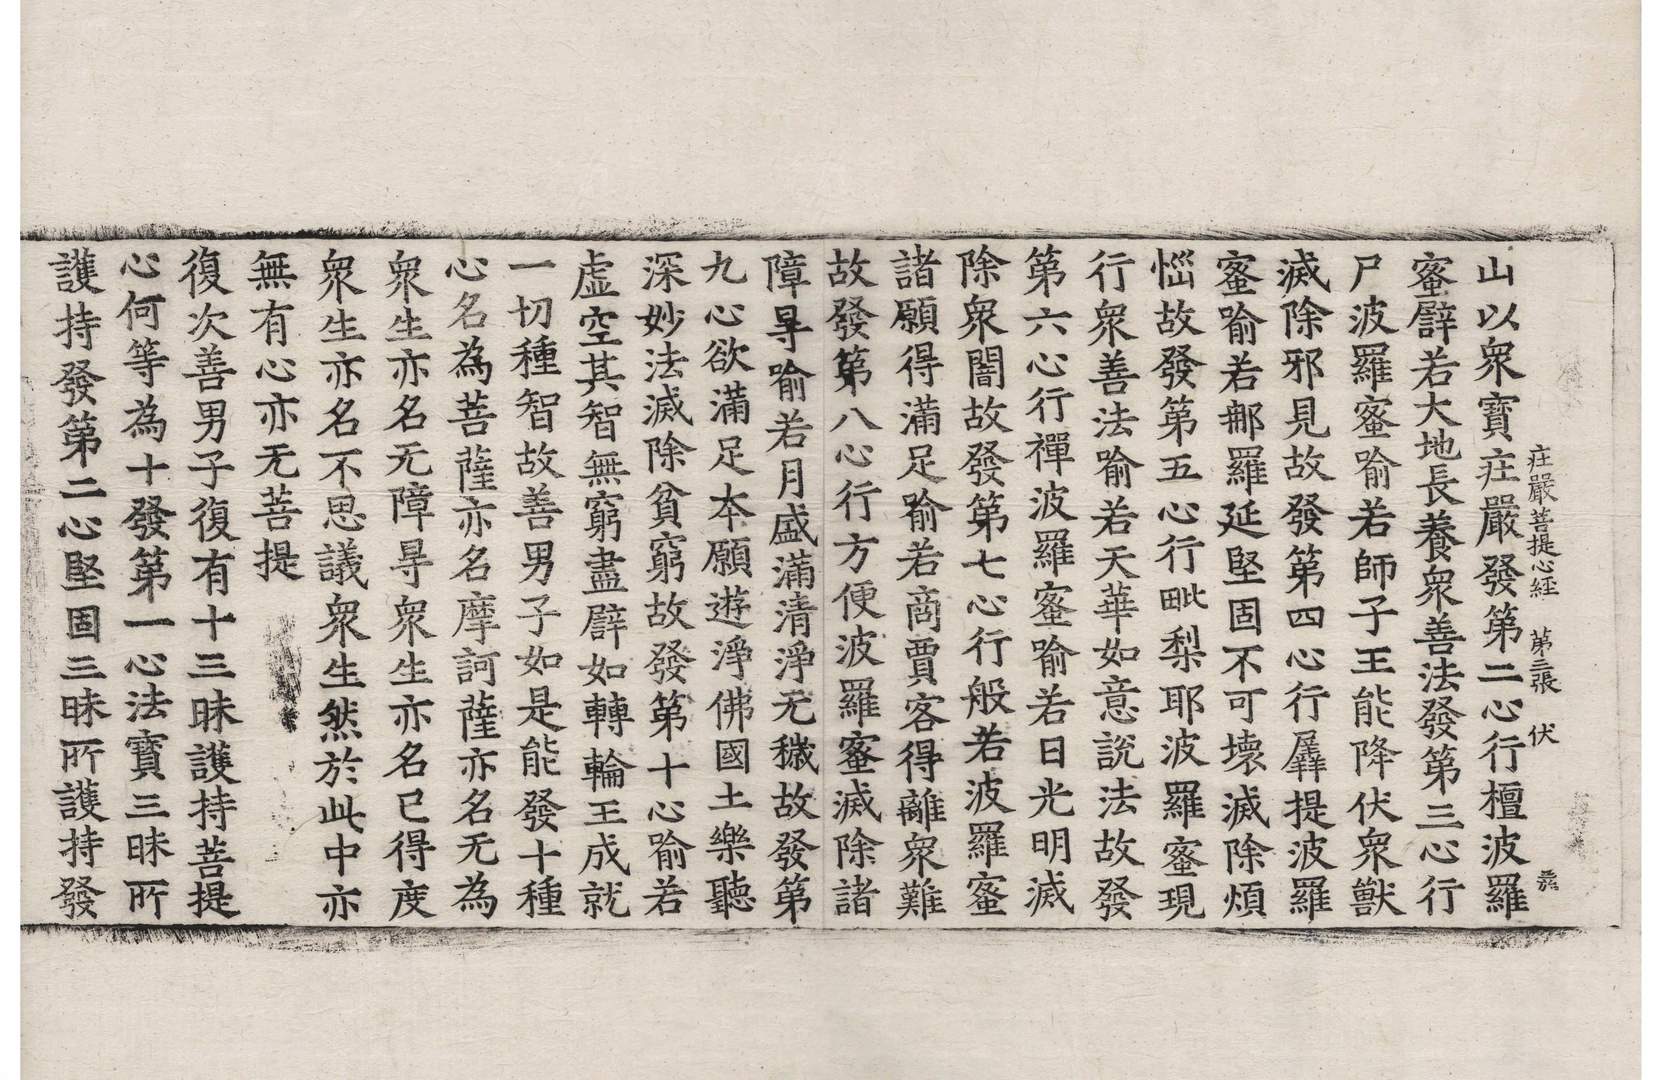 庄嚴菩提心經　第三張　伏
山以衆寶庄嚴發第二心行檀波羅
蜜譬若大地長養衆善法發第三心行
尸波羅蜜喻若師子王能降伏衆獸
滅除邪見故發第四心行羼提波羅
蜜喻若那羅延堅固不可壞滅除煩
惱故發第五心行毗梨耶波羅蜜現
行衆善法喻若天華如意說法故發
第六心行禪波羅蜜喻若日光明滅
除衆闇故發第七心行般若波羅蜜
諸願得滿足喻若商賈客得離衆難
故發第八心行方便波羅蜜滅除諸
障㝵喻若月盛滿清淨无穢故發第
九心欲滿足本願遊淨佛國土樂聽
深妙法滅除貧窮故發第十心喻若
虛空其智無窮盡譬如轉輪王成就
一切種智故善男子如是能發十種
心名為菩薩亦名摩訶薩亦名无為
衆生亦名无障㝵衆生亦名已得度
衆生亦名不思議衆生然於此中亦
無有心亦无菩提
復次善男子復有十三昧護持菩提
心何等為十發第一心法寶三昧所
護持發第二心堅固三昧所護持發